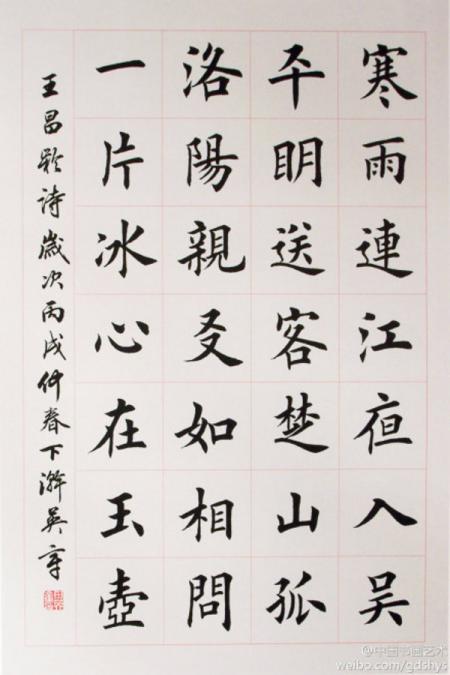 寒雨連江夜入吴
平眀送客楚山孤
洛陽親友如相問
一片冰心在玉壺
王昌齡詩歲次丙戌仲春下澣
@中国书画艺术
weibo.com/gdshys